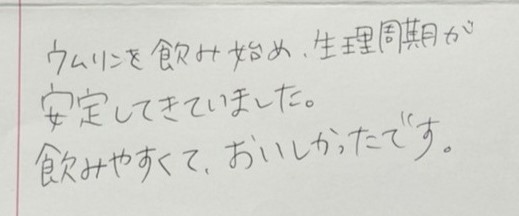 ウムリンを飲み始め、生理周期が
安定してきていました。
飲みやすくて、おいしかったです。